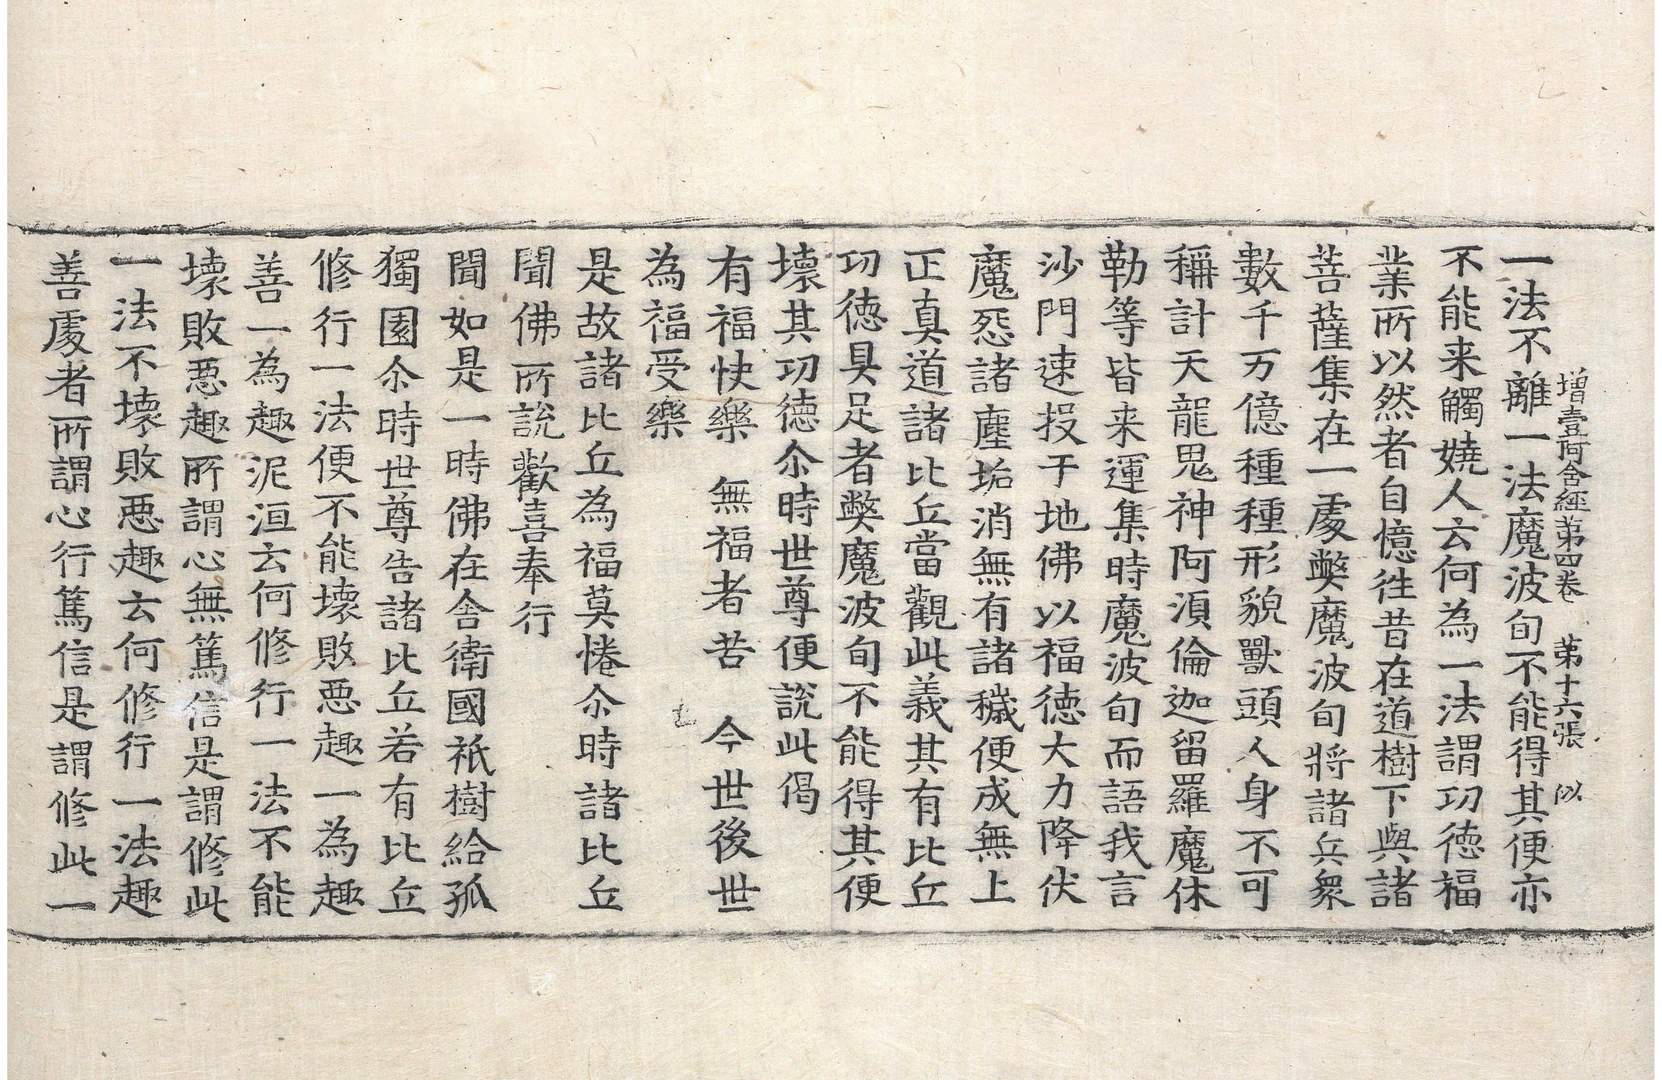 增壹阿含經第四卷 第十六張 似
一法不離一法魔波旬不能得其便亦
不能来觸嬈人云何為一法謂功德福
業所以然者自憶往昔在道樹下與諸
菩薩集在一處弊魔波旬將諸兵衆
數千万億種種形貌獸頭人身不可
稱計天龍鬼神阿須倫迦留羅魔休
勒等皆来運集時魔波旬而語我言
沙門速投于地佛以福德大力降伏
魔怨諸塵垢消無有諸穢便成無上
正真道諸比丘當觀此義其有比丘
功德具足者弊魔波旬不能得其便
壞其功德尒時世尊便說此偈
有福快樂 無福者苦 今世後世
為福受樂
是故諸比丘為福莫惓尒時諸比丘
聞佛所說歡喜奉行
聞如是一時佛在舍衛國祇樹給孤
獨園尒時世尊告諸比丘若有比丘
修行一法便不能壞敗惡趣一為趣
善一為趣泥洹云何修行一法不能
壞敗惡趣所謂心無篤信是謂修此
一法不壞敗惡趣云何修行一法趣
善處者所謂心行篤信是謂修此一